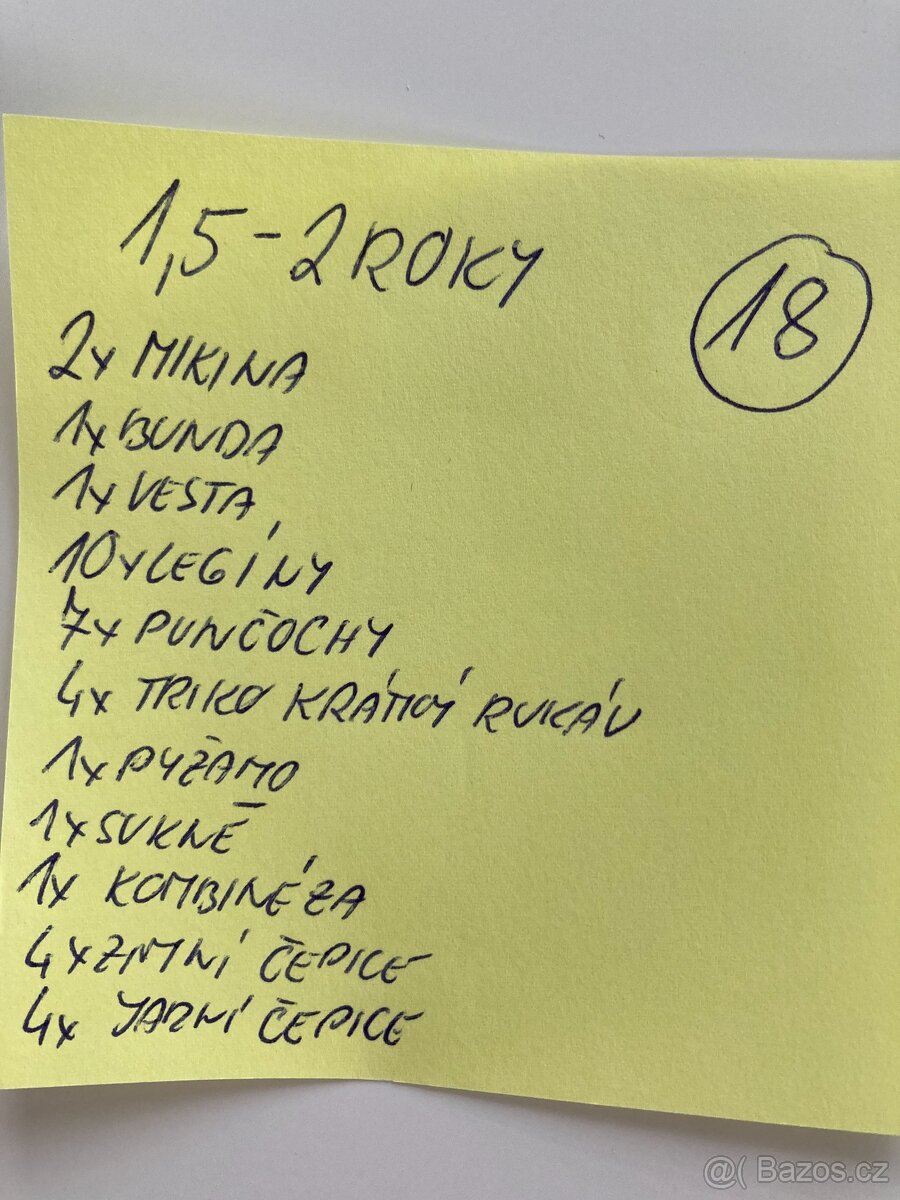 1,5-2 ROKY
18
2x MIKINA
1x BUNDA
1x VESTA
10x LEGÍNY
7x PUNČOCHY
4x TRIKO KRÁTKÝ RUKÁV
1x PYŽAMO
1x SUKNĚ
1x KOMBINÉZA
4x ZIMNÍ ČEPICE
4x JARNÍ ČEPICE
@( Bazos.cz